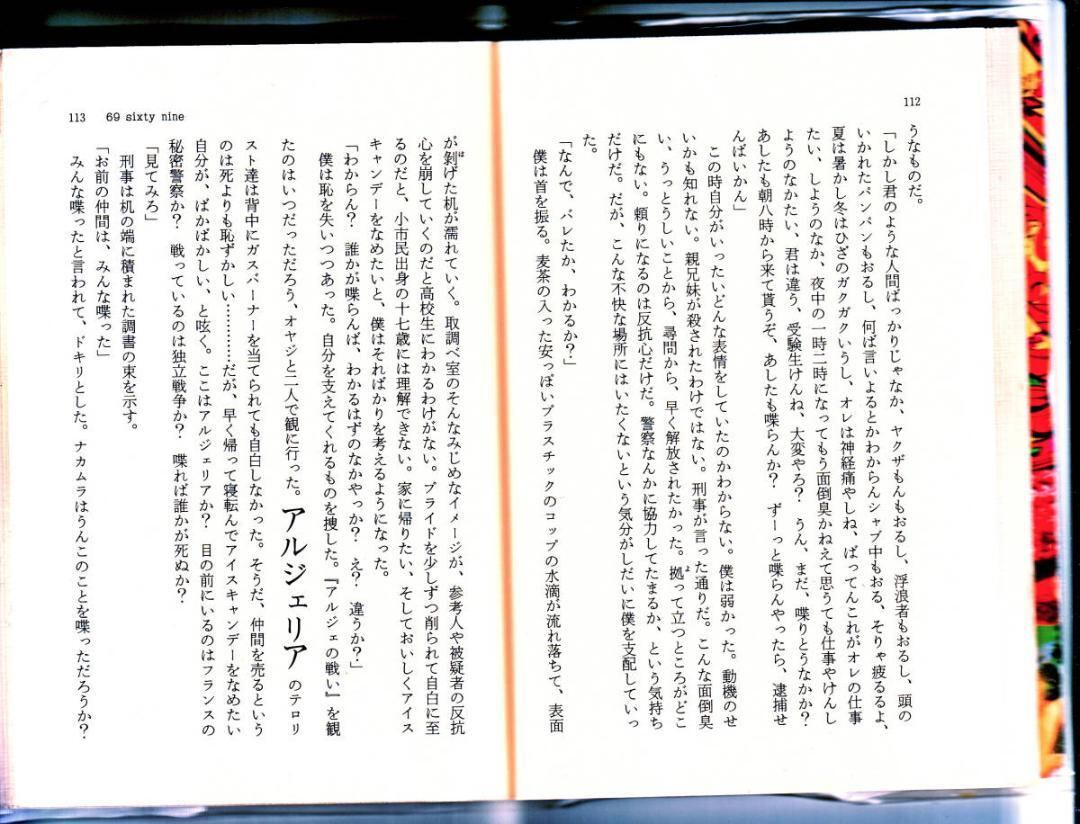 112
うなものだ。
「しかし君のような人間ばっかりじゃなか、ヤクザもんもおるし、浮浪者もおるし、頭の
いかれたパンパンもおるし、何ば言いよるとかわからんシャブ中もおる、そりゃ疲るるよ、
夏は暑かし冬はひざのガクガクいうし、オレは神経痛やしね、ばってんこれがオレの仕事
たい、しようのなか、夜中の一時二時になってもう面倒臭かねえて思うても仕事やけんし
ようのなかたい、君は違う、受験生けんね、大変やろ？　うん、まだ、喋りとうなかか？
あしたも朝八時から来て貰うぞ、あしたも喋らんか？　ずーっと喋らんやったら、逮捕せ
んばいかん」
この時自分がいったいどんな表情をしていたのかわからない。僕は弱かった。動機のせ
いかも知れない。親兄妹が殺されたわけではない。刑事が言った通りだ。こんな面倒臭
い、うっとうしいことから、尋問から、早く解放されたかった。拠って立つところがどこ
にもない。頼りになるのは反抗心だけだ。警察なんかに協力してたまるか、という気持ち
だけだ。だが、こんな不快な場所にはいたくないという気分がしだいに僕を支配していっ
た。
「なんで、バレたか、わかるか？」
僕は首を振る。麦茶の入った安っぽいプラスチックのコップの水滴が流れ落ちて、表面
113 69 sixty nine
が剝げた机が濡れていく。取調べ室のそんなみじめなイメージが、参考人や被疑者の反抗
心を崩していくのだと高校生にわかるわけがない。プライドを少しずつ削られて自白に至
るのだと、小市民出身の十七歳には理解できない。家に帰りたい、そしておいしくアイス
キャンデーをなめたいと、僕はそればかりを考えるようになった。
「わからん？　誰かが喋らんば、わかるはずのなかやっか？　え？　違うか？」
僕は恥を失いつつあった。自分を支えてくれるものを捜した。『アルジェの戦い』を観
たのはいつだっただろう、オヤジと二人で観に行った。アルジェリアのテロリ
スト達は背中にガスバーナーを当てられても自白しなかった。そうだ、仲間を売るという
のは死よりも恥ずかしい…………だが、早く帰って寝転んでアイスキャンデーをなめたい
自分が、ばかばかしい、と呟く。ここはアルジェリアか？　目の前にいるのはフランスの
秘密警察か？　戦っているのは独立戦争か？　喋れば誰かが死ぬか？
「見てみろ」
刑事は机の端に積まれた調書の束を示す。
「お前の仲間は、みんな喋った」
みんな喋ったと言われて、ドキリとした。ナカムラはうんこのことを喋っただろうか？